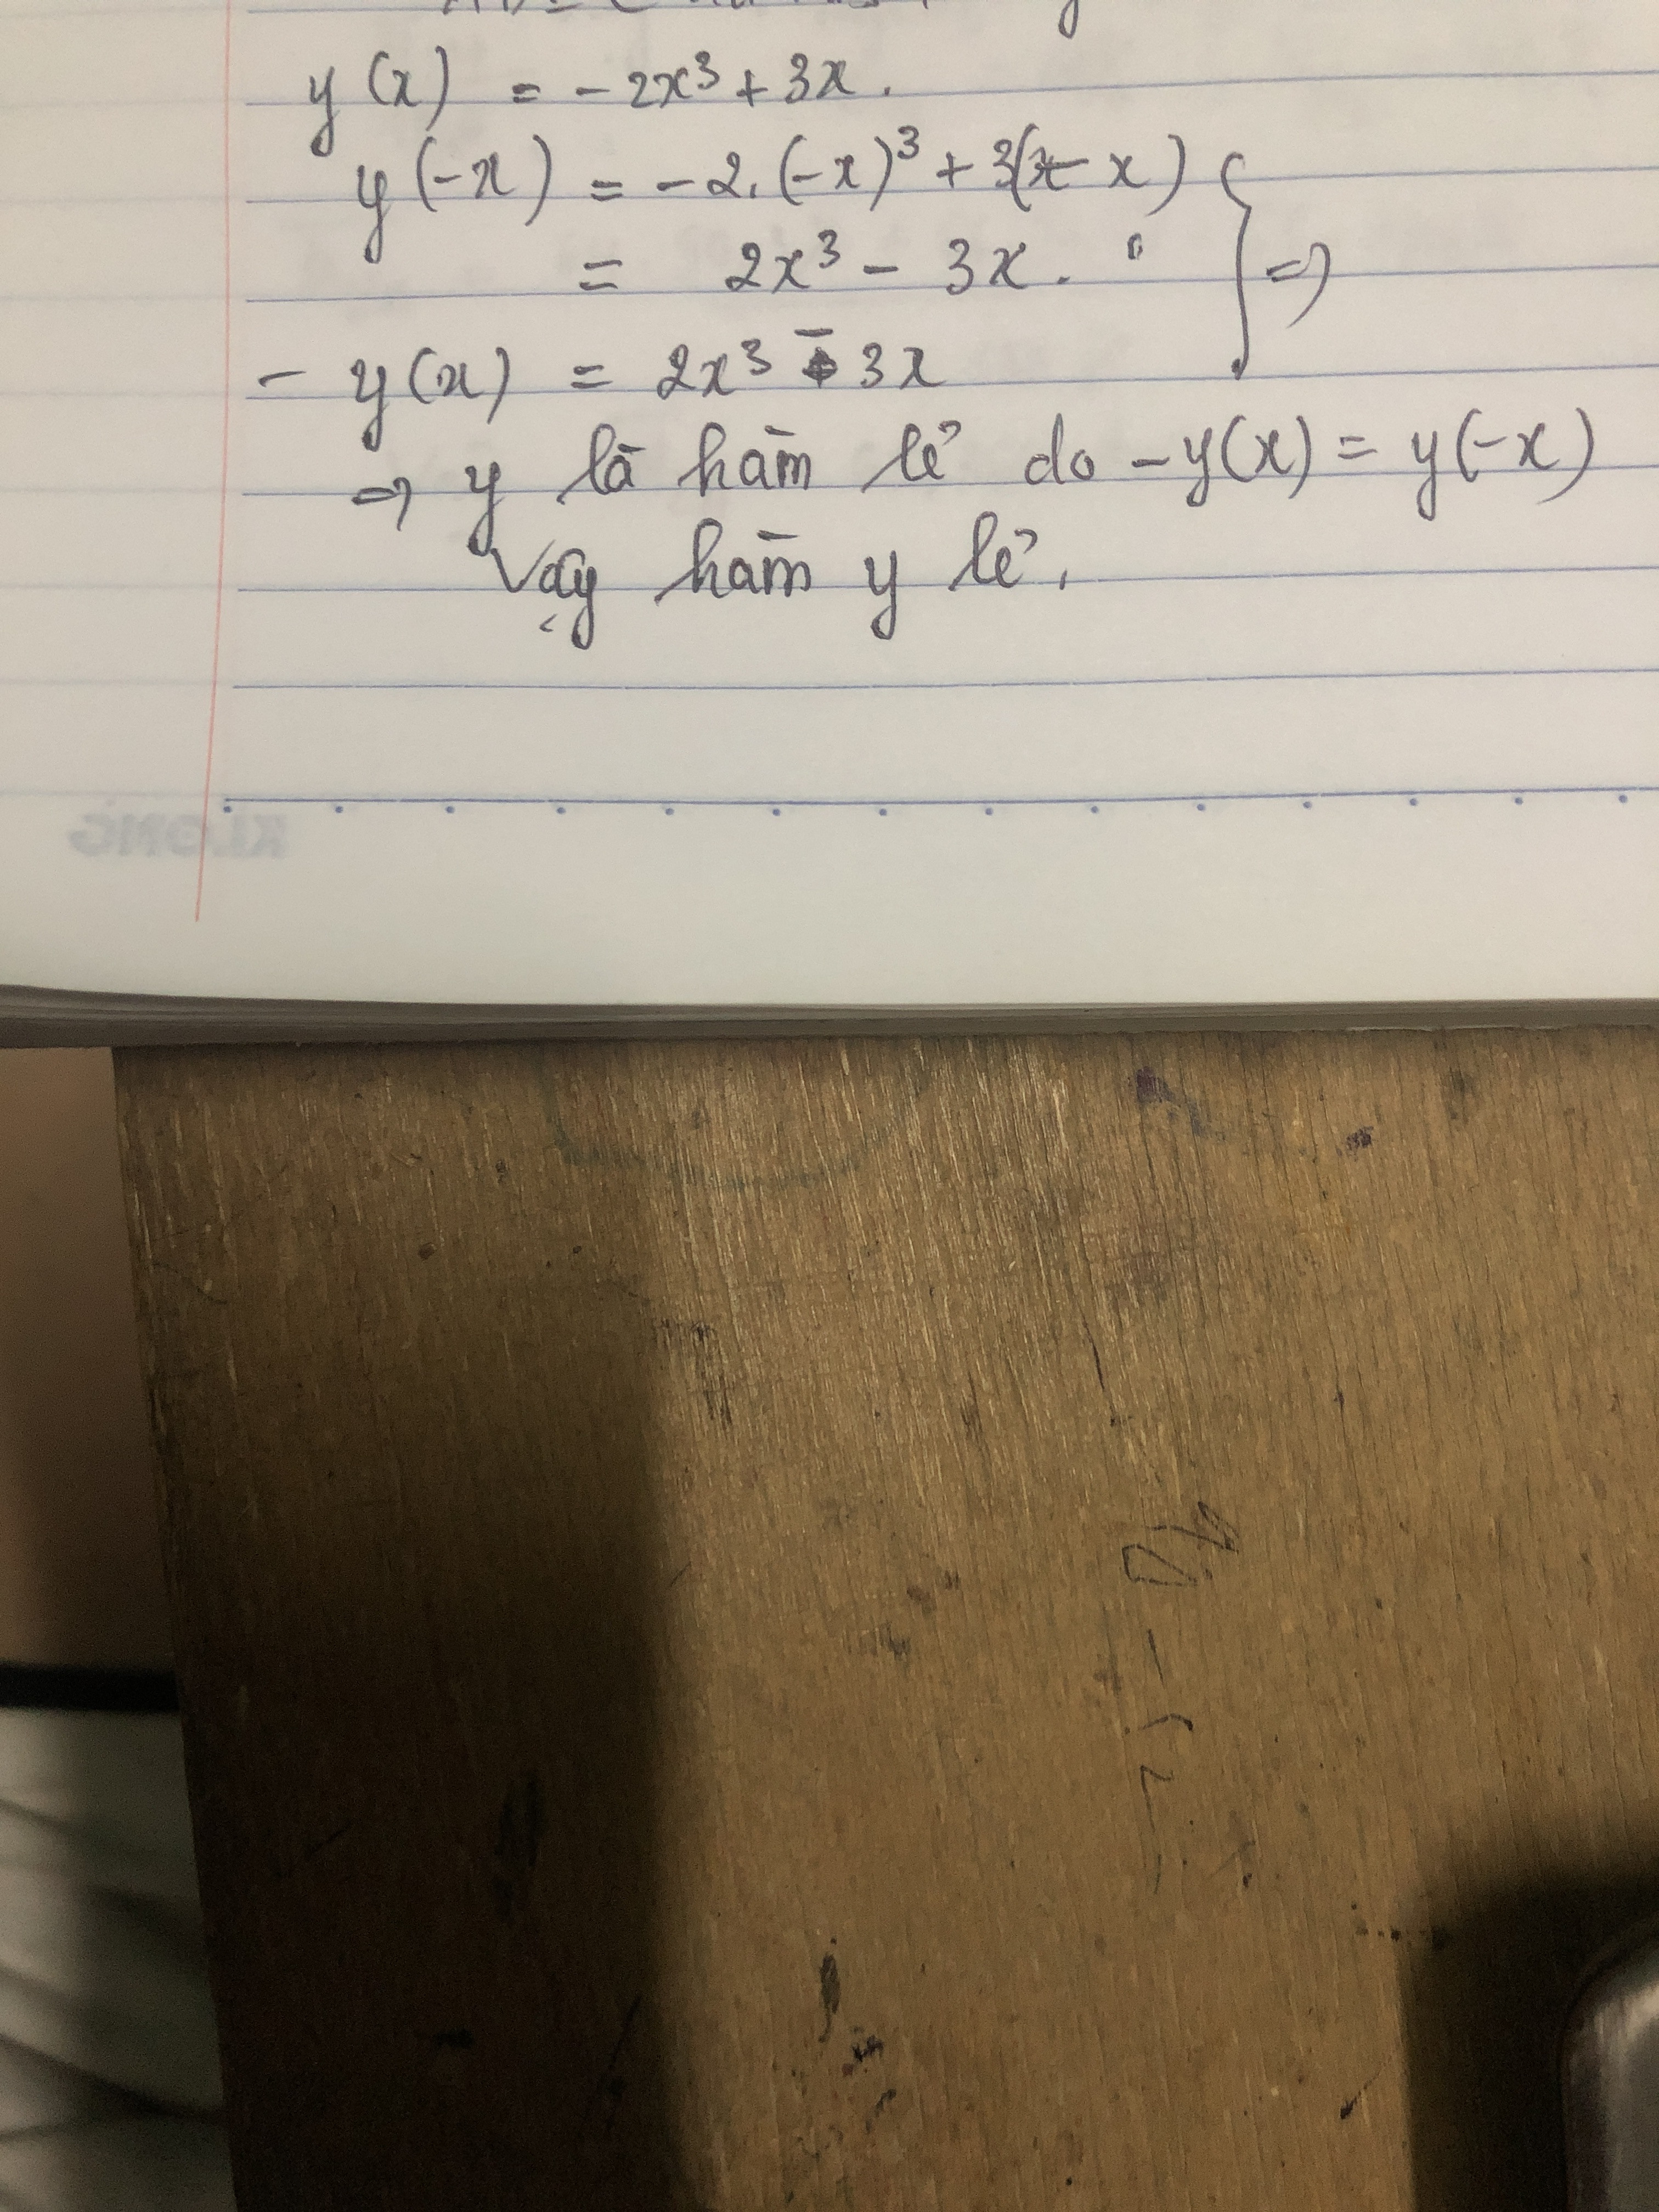 y(x) = -2x³ + 3x.
y(-x) = -2.(-x)³ + 3(-x)
= 2x³ - 3x.
} =>
- y(x) = 2x³ - 3x
=> y là hàm lẻ do -y(x) = y(-x)
Vậy hàm y lẻ.
KLONG